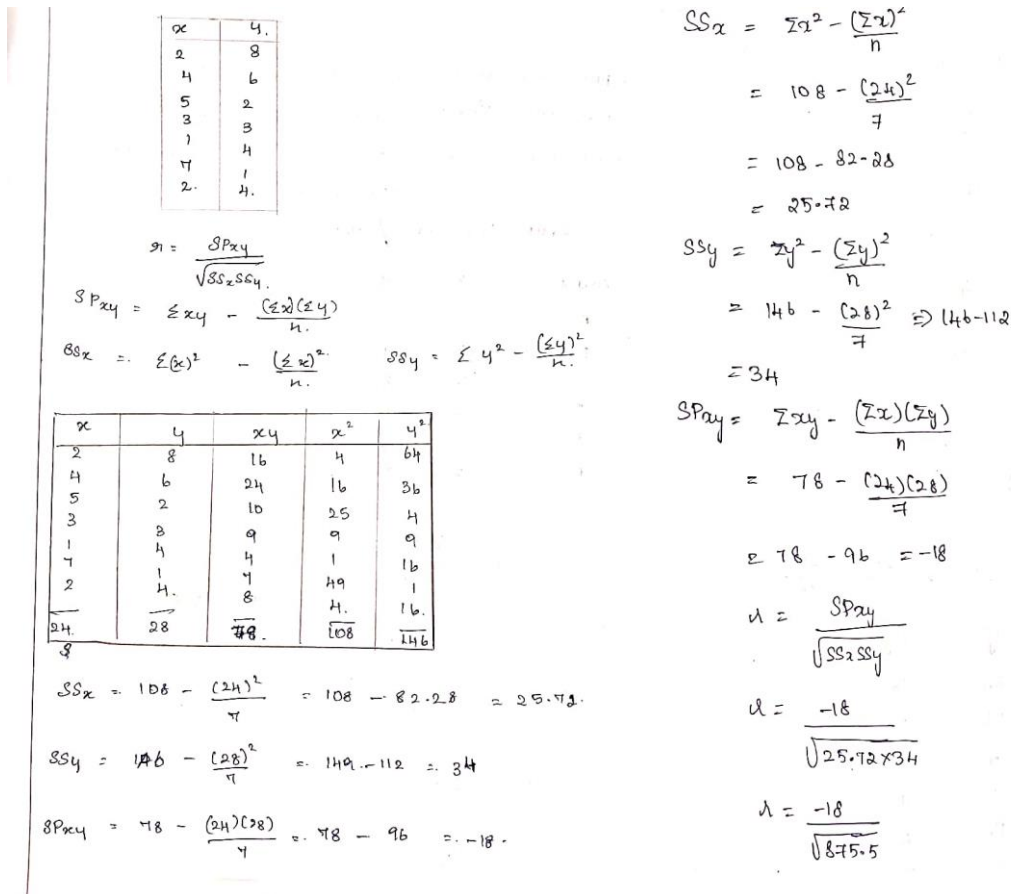 x y.
2 8
4 6
5 2
3 3
1 4
7 1
2. 4.
r = SPxy / √SSxSSy.
SPxy = Σxy - (Σx)(Σy) / n.
SSx = Σ(x)² - (Σx)² / n. SSy = Σy² - (Σy)² / n.
x y xy x² y²
2 8 16 4 64
4 6 24 16 36
5 2 10 25 4
3 3 9 9 9
1 4 4 1 16
7 1 7 49 1
2 4. 8 4. 16.
24. 28 78. 108 146
SSx = 108 - (24)² / 7 = 108 - 82.28 = 25.72.
SSy = 146 - (28)² / 7 = 149 - 112 = 34
SPxy = 78 - (24)(28) / 7 = 78 - 96 = -18.
SSx = Σx² - (Σx)² / n
= 108 - (24)² / 7
= 108 - 82-28
= 25.72
SSy = Σy² - (Σy)² / n
= 146 - (28)² / 7 ⇒ 146-112
= 34
SPxy = Σxy - (Σx)(Σy) / n
= 78 - (24)(28) / 7
= 78 - 96 = -18
r = SPxy / √SSxSSy
r = -18 / √25.72×34
r = -18 / √875.5